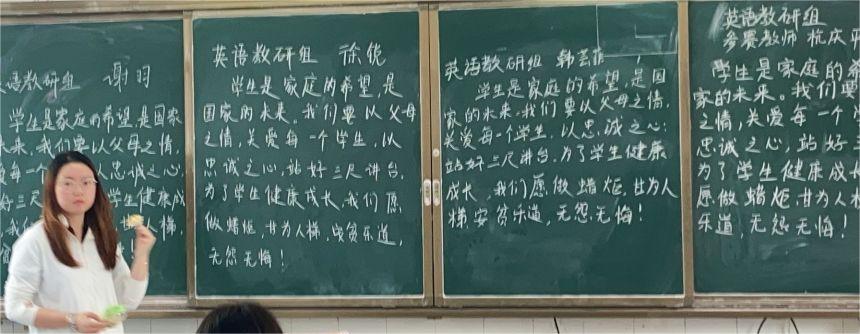 语教研组 谢羽
学生是家庭的希望,是国家
未来,我们要以父母之情,
爱每一个 以忠诚之心
好三尺 学生健康成
我们 人梯,
英语教研组 徐锐
学生是家庭的希望,是
国家的未来。我们要以父母
之情,关爱每一个学生,以
忠诚之心,站好三尺讲台,
为了学生健康成长,我们愿
做蜡炬,甘为人梯,安贫乐道,
无怨无悔!
英语教研组 韩芸菲
学生是家庭的希望,是国
家的未来。我们要以父母之情,
关爱每一个学生,以忠诚之心,
站好三尺讲台,为了学生健康
成长,我们愿做蜡炬,甘为人
梯,安贫乐道,无怨无悔!
英语教研组
参赛教师 杭庆
学生是家庭的希
家的未来。我们要
之情,关爱每一个
忠诚之心,站好三
为了学生健康成
愿做蜡炬,甘为人
乐道,无怨无悔!